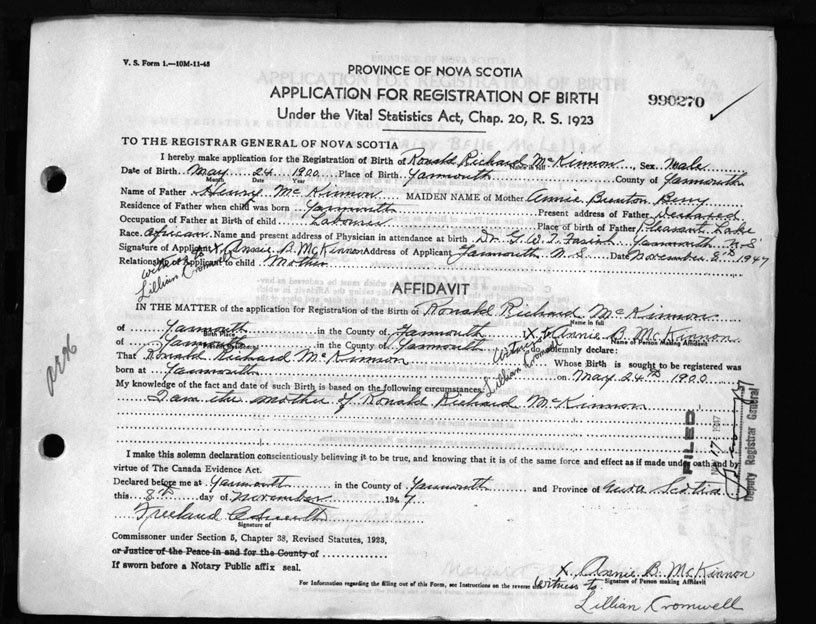 V. S. Form 1.—10M-11-48
PROVINCE OF NOVA SCOTIA
APPLICATION FOR REGISTRATION OF BIRTH
990270
Under the Vital Statistics Act, Chap. 20, R. S. 1923
TO THE REGISTRAR GENERAL OF NOVA SCOTIA
I hereby make application for the Registration of Birth of Ronald Richard McKinnon, Sex Male
Name in full
Date of Birth May 24 1900 Place of Birth Yarmouth County of Yarmouth
Month Date Year
Name of Father Henry McKinnon MAIDEN NAME of Mother Annie Berry
Residence of Father when child was born Yarmouth Present address of Father Deceased
Occupation of Father at Birth of child Labourer Place of birth of Father Pleasant Lake
Race African Name and present address of Physician in attendance at birth Dr. G. W. T. Yarmouth N S
Signature of Applicant X Annie B McKinnon Address of Applicant Yarmouth N. S. Date November 8th 1947
Relationship of Applicant to child Mother
Witness to
Lillian Cromwell
AFFIDAVIT
IN THE MATTER of the application for Registration of the Birth of Ronald Richard McKinnon
Name in full
of Yarmouth in the County of Yarmouth X Annie B. McKinnon
Birth Place
Name of Person Making Affidavit
of Yarmouth in the County of Yarmouth do solemnly declare:
Witness to
Lillian Cromwell
That Ronald Richard McKinnon Whose Birth is sought to be registered was
born at Yarmouth on May 24th 1900
My knowledge of the fact and date of such Birth is based on the following circumstances
I am the mother of Ronald Richard McKinnon
I make this solemn declaration conscientiously believing it to be true, and knowing that it is of the same force and effect as if made under oath and by
virtue of The Canada Evidence Act.
Declared before me at Yarmouth in the County of Yarmouth and Province of Nova Scotia
this 8th day of November 1947
Signature of
Commissoner under Section 5, Chapter 38, Revised Statutes, 1923,
or Justice of the Peace in and for the County of
If sworn before a Notary Public affix seal.
X Annie B. McKinnon
For Information regarding the filling out of this Form, see Instructions on the reverse
Signature of Person making Affidavit
Witness to
Lillian Cromwell
FILED
Deputy Registrar General